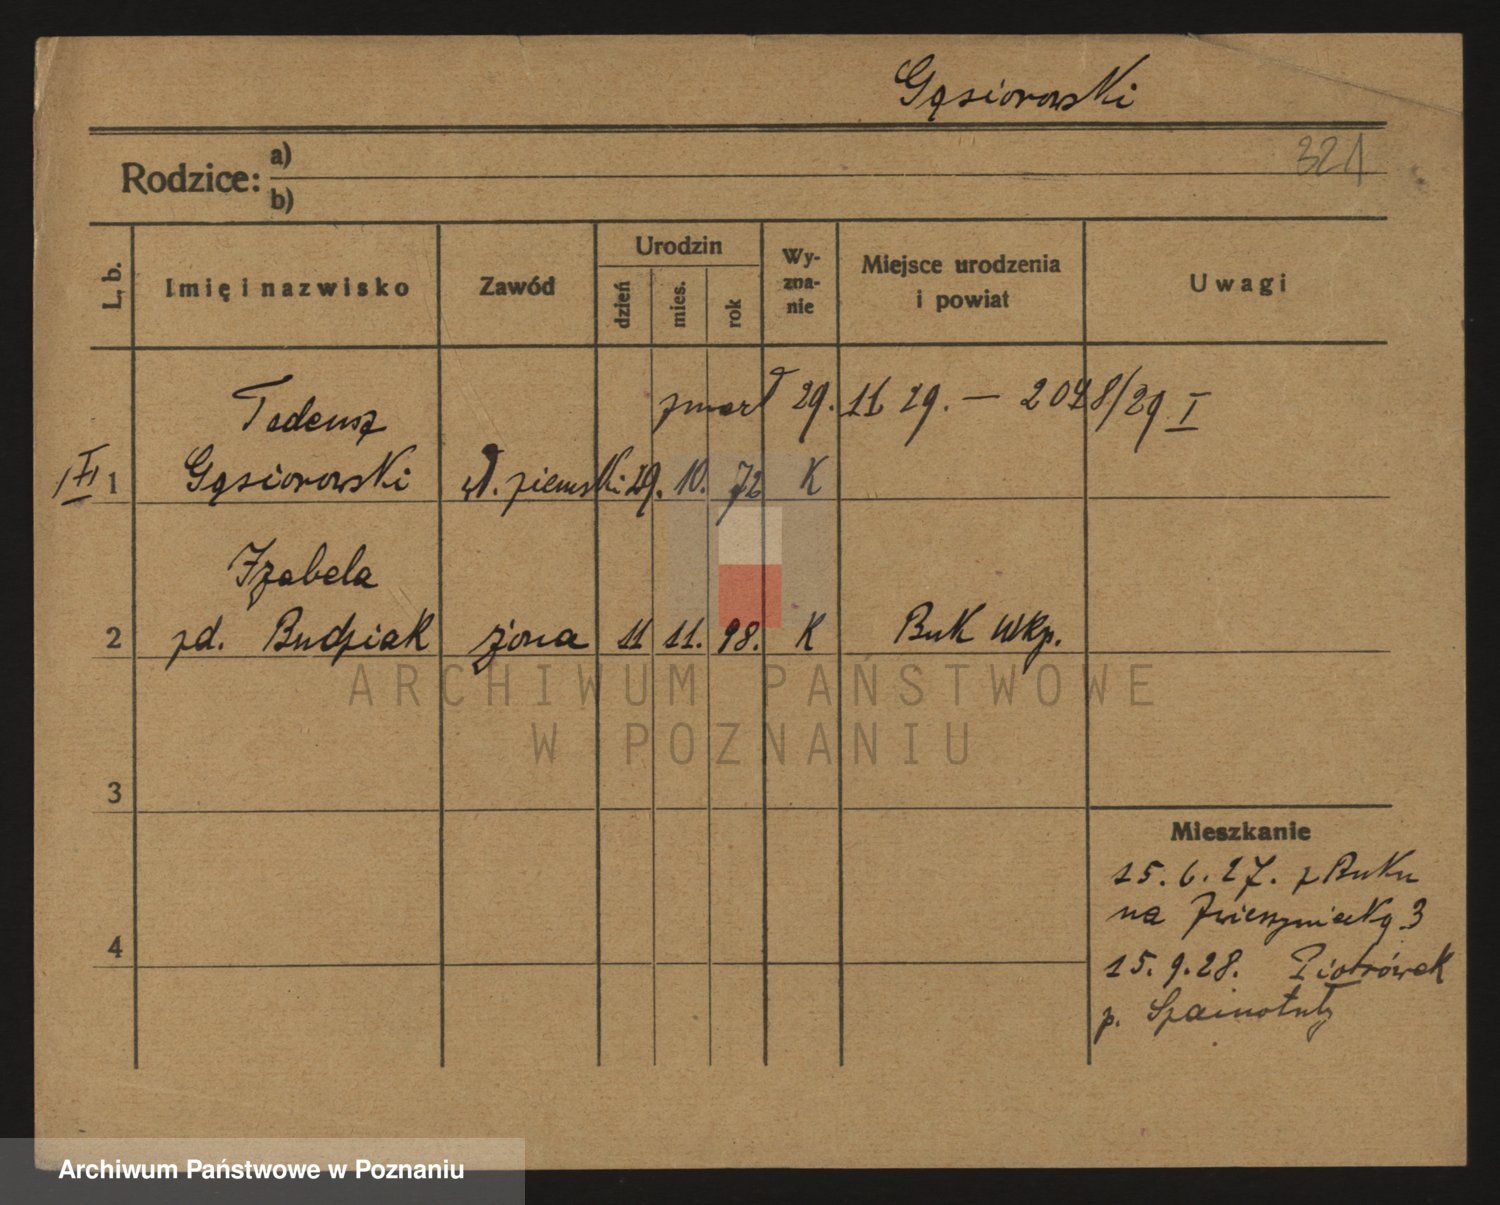 Gąsiorowski
321
Rodzice: a)
b)
L. b.
Imię i nazwisko
Zawód
Urodzin
dzień
mies.
rok
Wy-
zna-
nie
Miejsce urodzenia
i powiat
Uwagi
Tadeusz
zmarł 29. 11 29. — 2048/29 I
1 Gąsiorowski wł. ziemski 29. 10. 72 K
Izabela
2 zd. Budziak żona 11 11. 98. K Buk Wkp.
3
4
Mieszkanie
15. 6. 27. z Buku
na Zwierzyniecką 3
15. 9. 28. Piotrówek
p. Szamotuły
ARCHIWUM PAŃSTWOWE
W POZNANIU
Archiwum Państwowe w Poznaniu